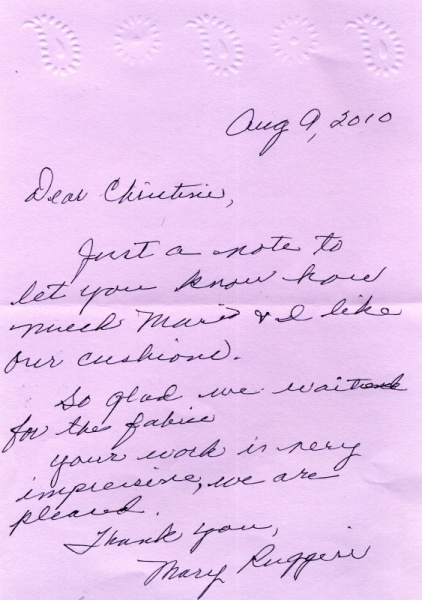 Aug 9, 2010
Dear Christine,
Just a note to
let you know how
much Mario & I like
our cushions.
So glad we waited
for the fabric
your work is very
impressive, we are
pleased.
Thank you,
Mary Ruggeri